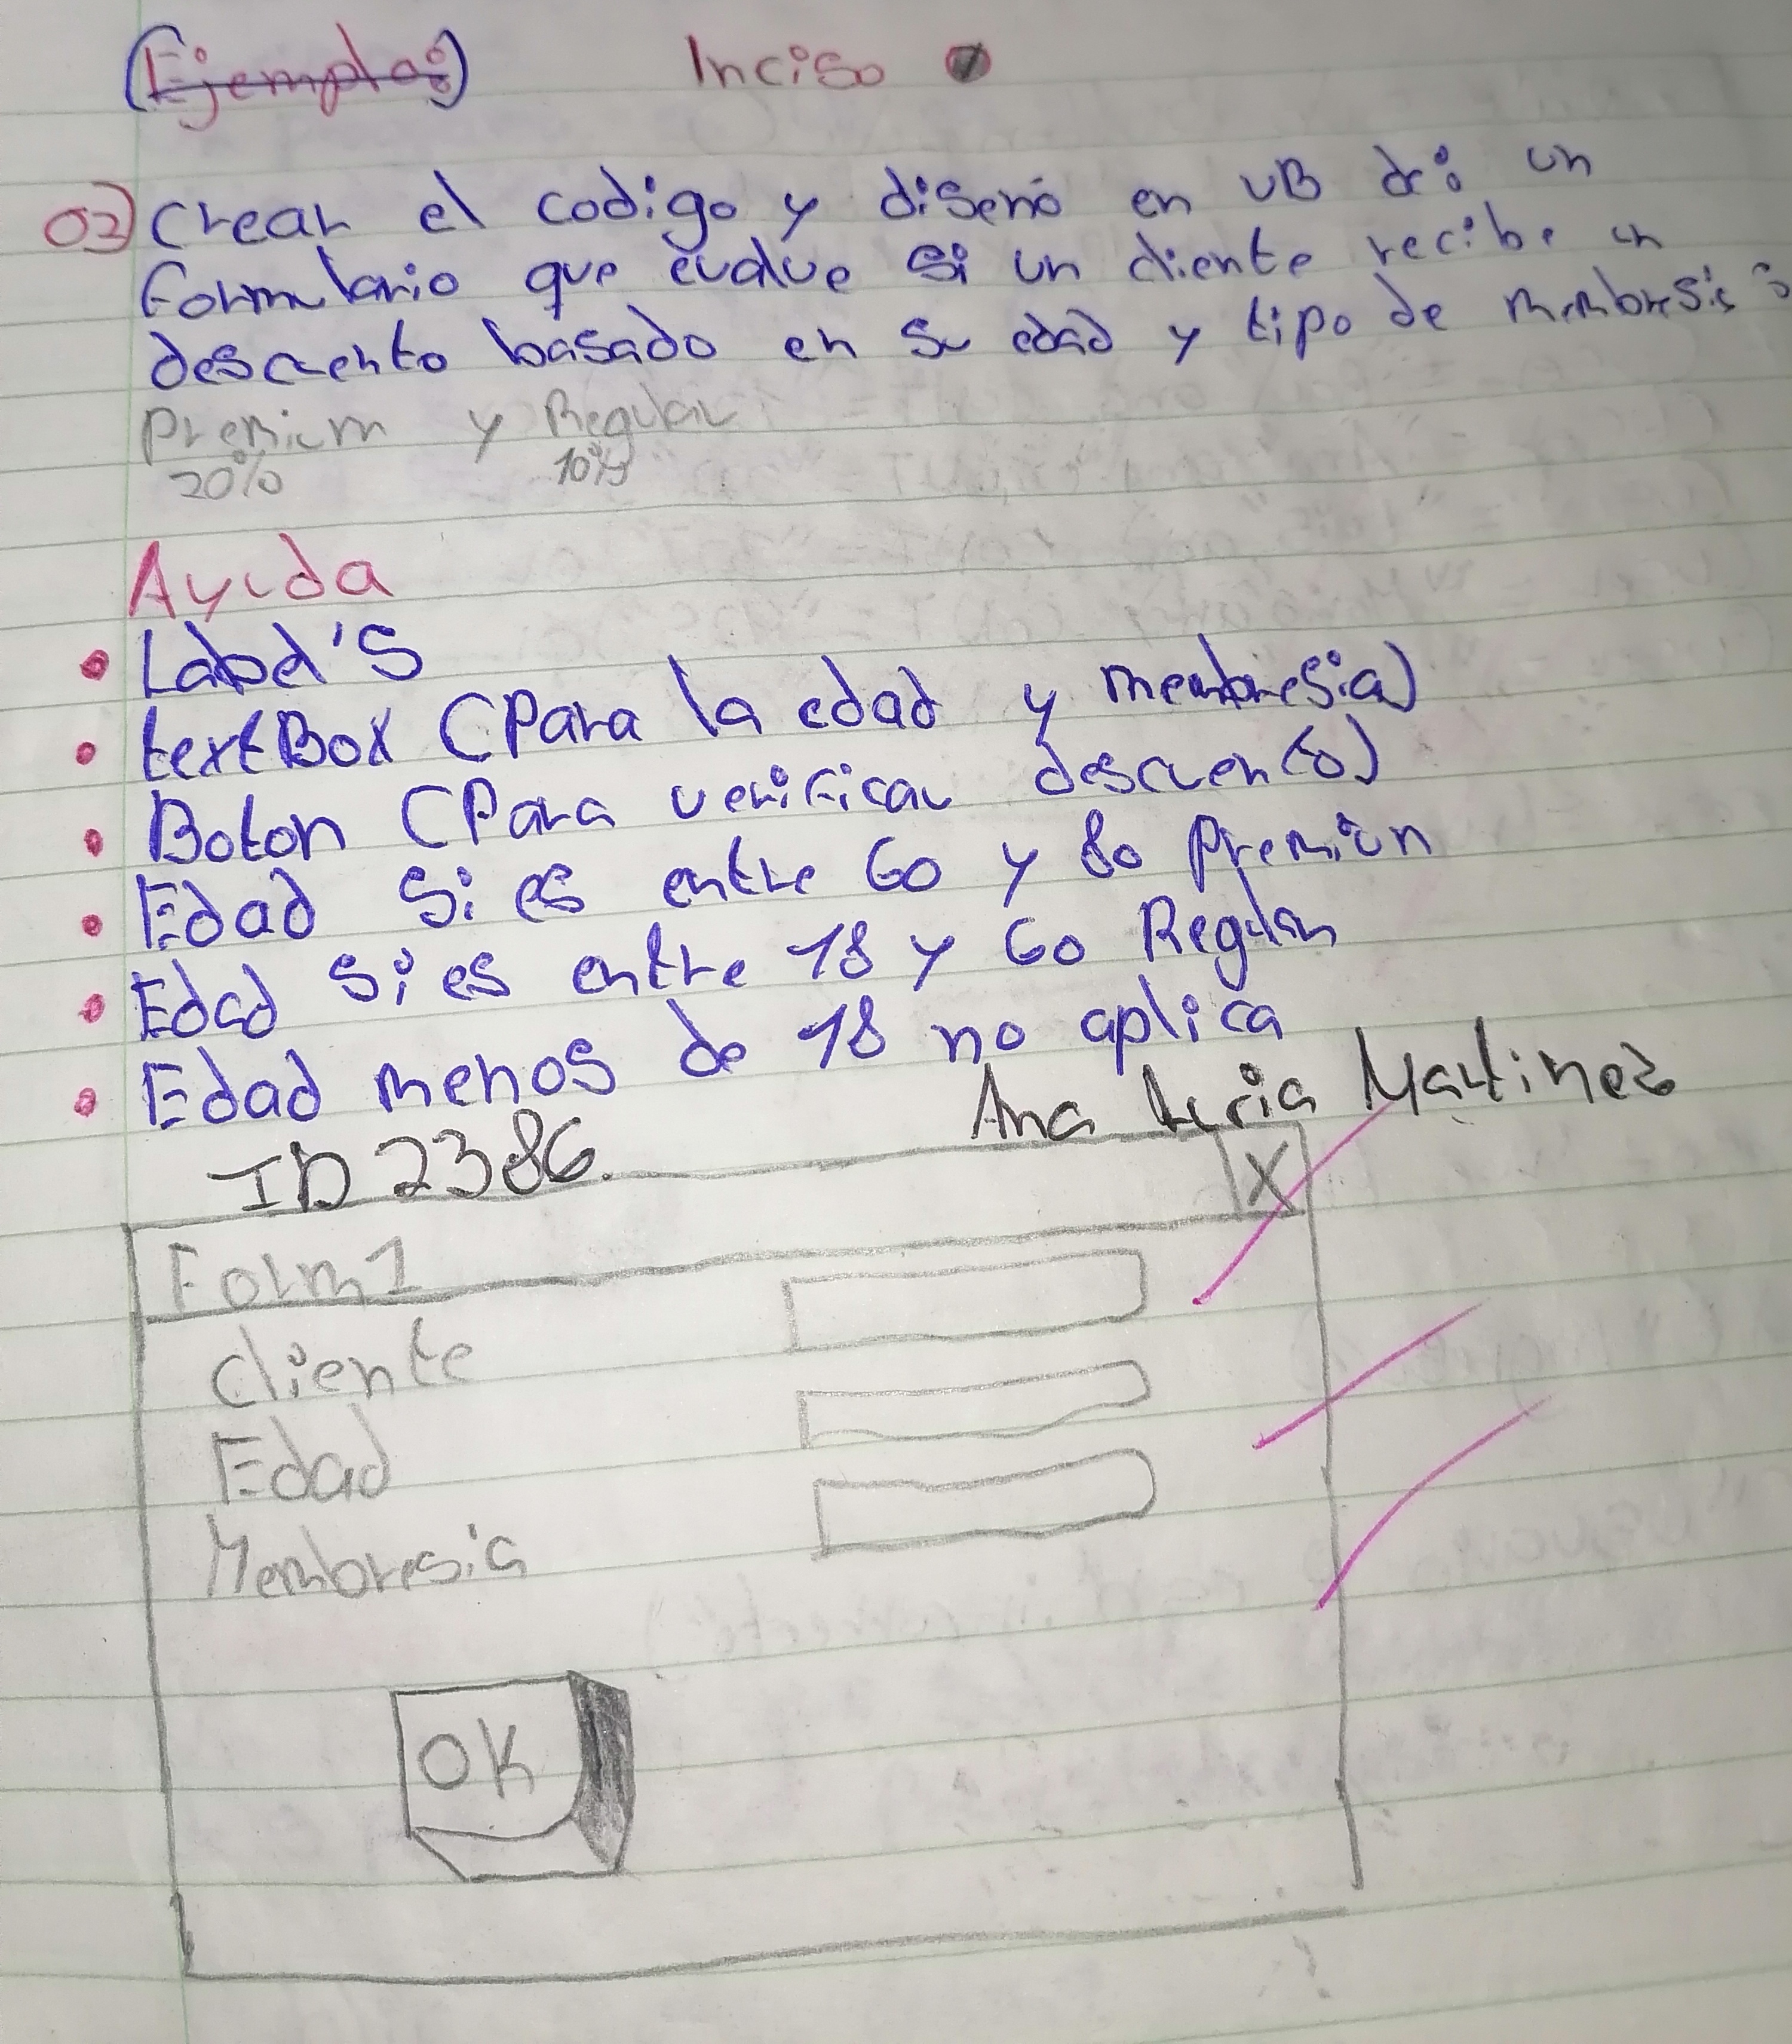 (Ejemplo:) Inciso
02) Crear el codigo y diseño en VB de: un
Formulario que evalue si un cliente recibe un
descuento basado en su edad y tipo de membresia:
Premium y Regular
20% 10%
Ayuda
• Label's
• textBox (Para la edad y membresia)
• Boton (Para verificar descuento)
• Edad si es entre 60 y 80 Premiun
• Edad si es entre 18 y 60 Regular
• Edad menos de 18 no aplica
ID 2386. Ana Martinez
X
Form1
cliente
Edad
Membresia
OK